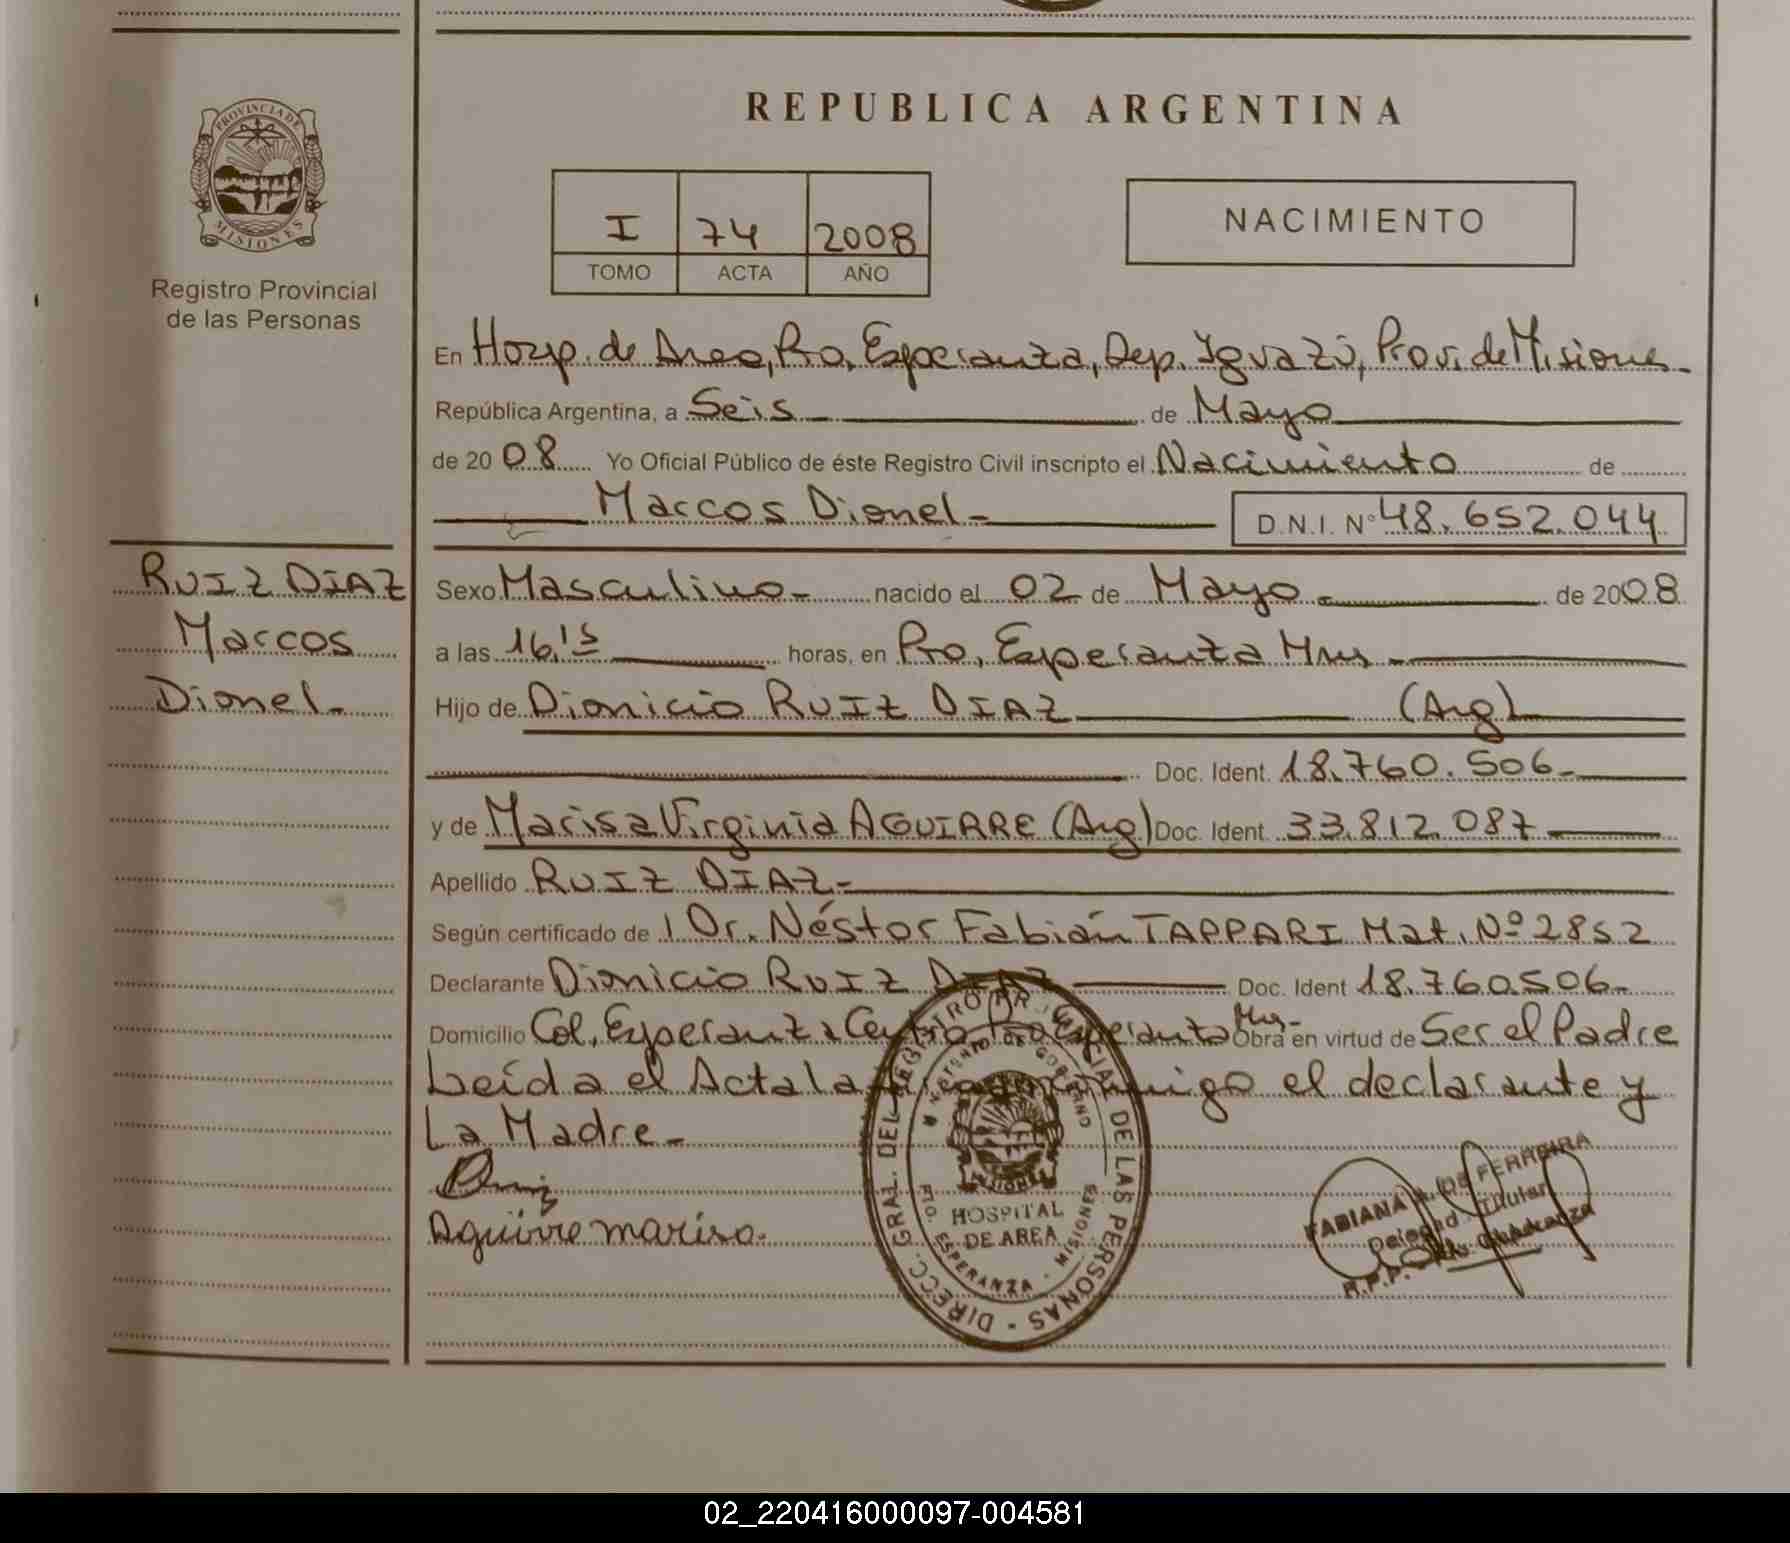 REPUBLICA ARGENTINA
PROVINCIA DE
MISIONES
Registro Provincial
de las Personas
I 74 2008
TOMO ACTA AÑO
NACIMIENTO
En Hosp. de Area, Pto, Esperanza, Dep. Iguazú, Prov. de Misiones
República Argentina, a Seis de Mayo
de 20 08 Yo Oficial Público de éste Registro Civil inscripto el Nacimiento de
Marcos Dionel- D.N.I. Nº 48.652.044
RUIZ DIAZ
Marcos
Dionel-
Sexo Masculino- nacido el 02 de Mayo- de 2008
a las 16,15 horas, en Pto, Esperanza Mns-
Hijo de Dionicio RUIZ DIAZ (Arg)
Doc. Ident. 18.760.506-
y de Marisa Virginia AGUIRRE (Arg) Doc. Ident. 33.812.087
Apellido RUIZ DIAZ-
Según certificado de l Dr. Néstor Fabián TAPPARI Mat. Nº 2852
Declarante Dionicio RUIZ DIAZ Doc. Ident 18.760.506-
Domicilio Col. Esperanza Centro Pto Esperanza Mns- Obra en virtud de Ser el Padre
Leída el Acta la conmigo el declarante y
La Madre-
Aguirre marisa.
DIRECC. GRAL. DEL REGISTRO PROVINCIAL DE LAS PERSONAS
MINISTERIO DE GOBIERNO
MISIONES
HOSPITAL
DE AREA
PTO. ESPERANZA - MISIONES
FABIANA DE FERREIRA
Titular
R.P.P.
02_220416000097-004581